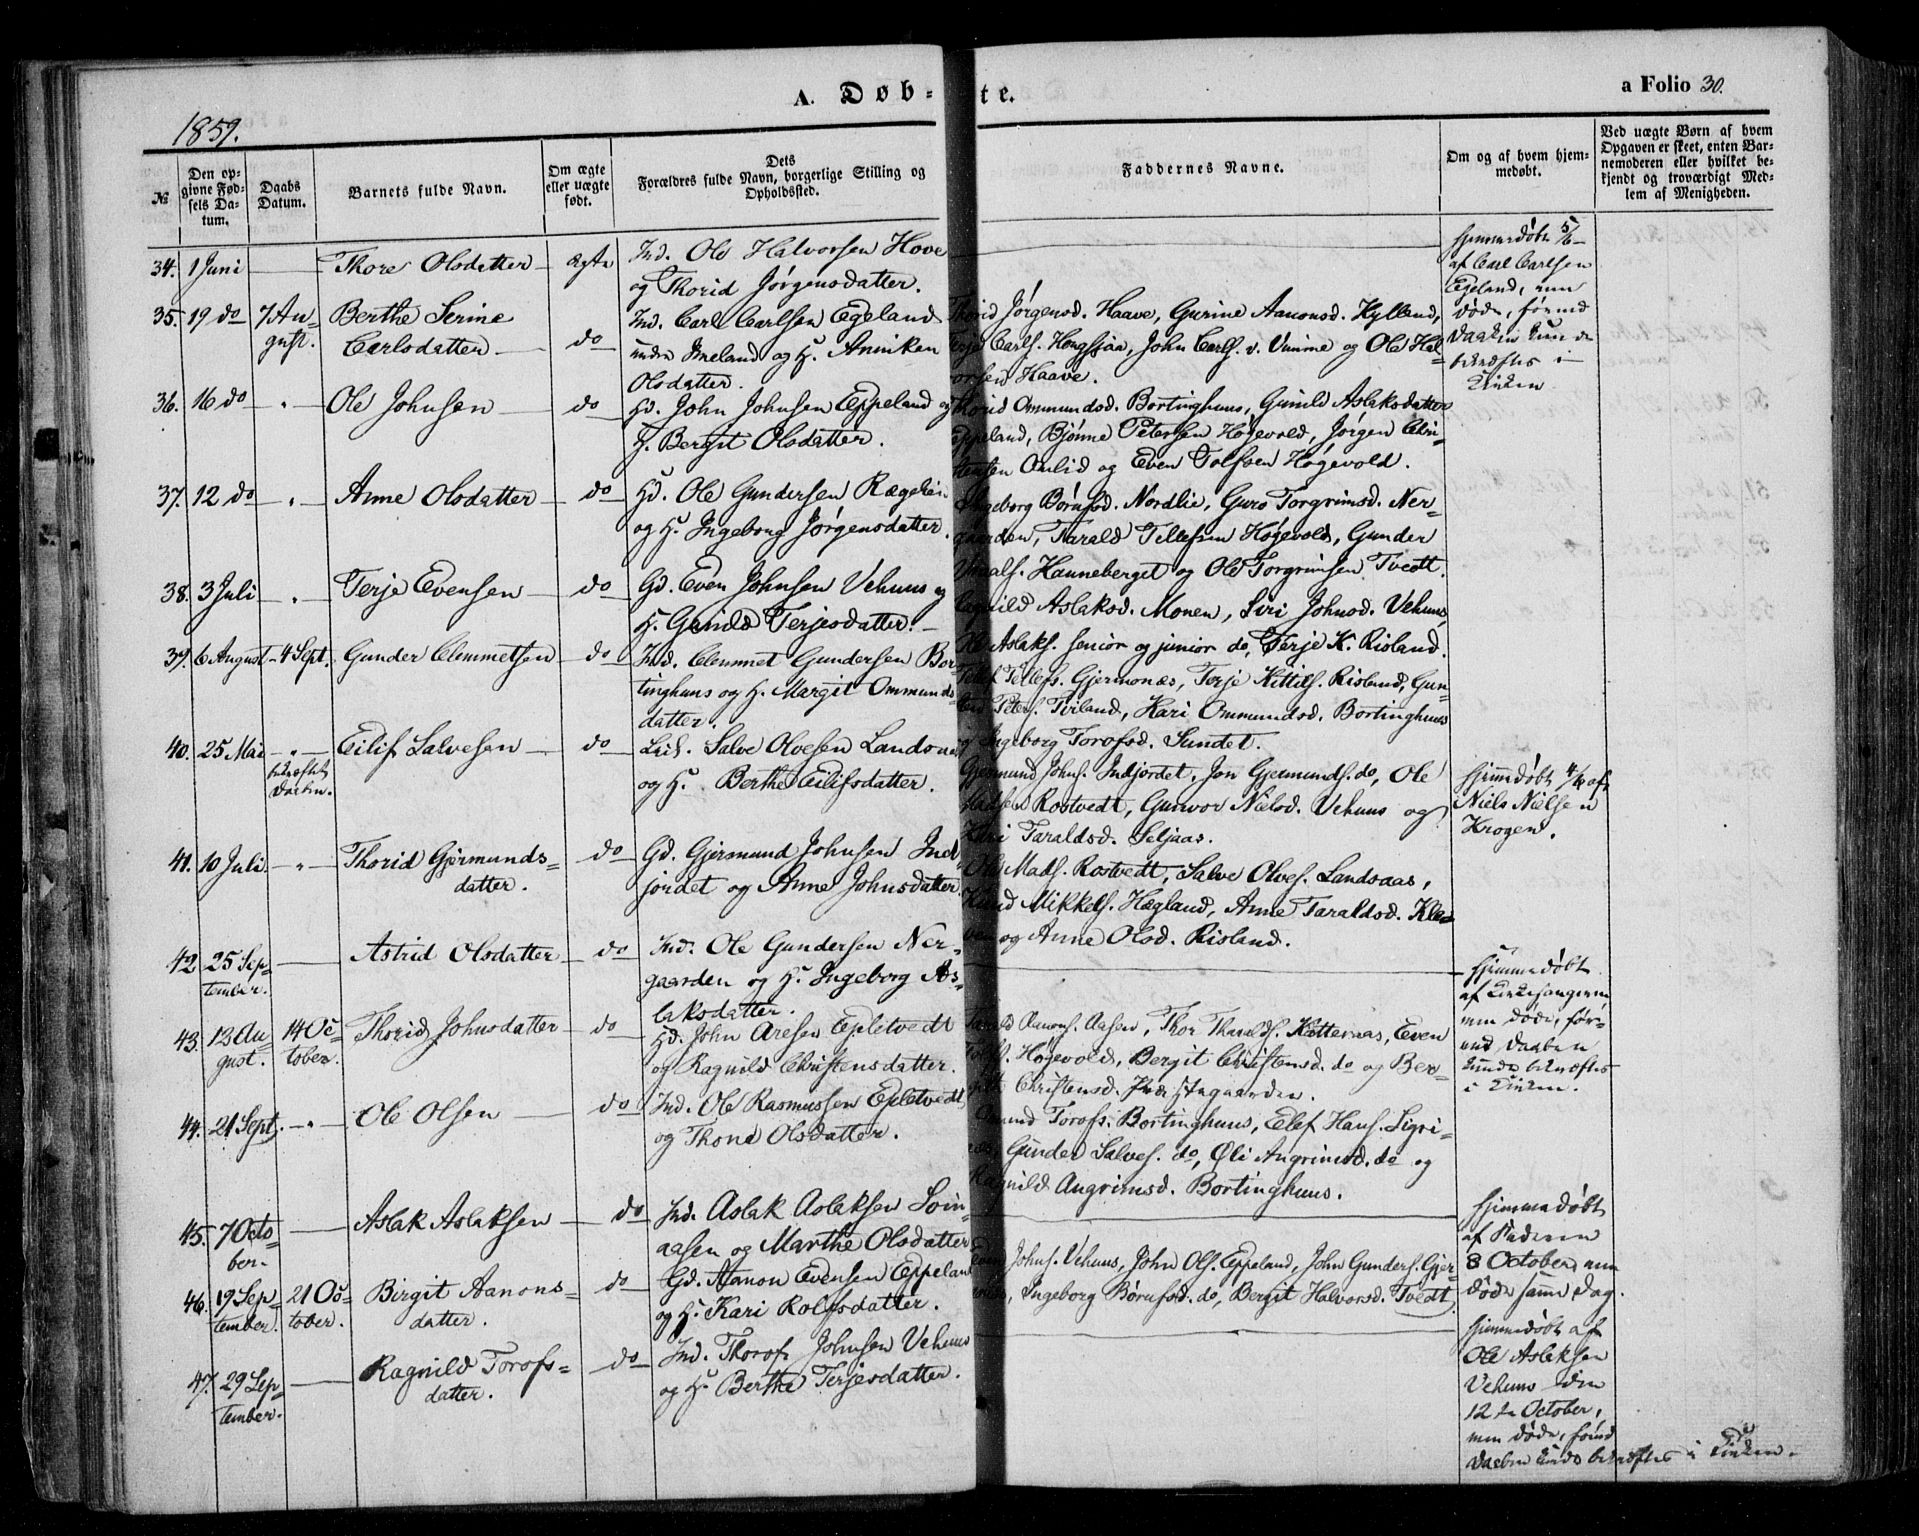 A. Døb-te.
a Folio 30.
1859.
№
Den op-
givne Fød-
sels Da-
tum.
Daabs
Datum.
Barnets fulde Navn.
Om ægte
eller uægte
født.
Dets
Forældres fulde Navn, borgerlige Stilling og
Opholdssted.
Faddernes Navne.
Om og af hvem hjem-
medøbt.
Ved uægte Børn af hvem
Opgaven er skeet, enten Bar-
nemoderen eller hvilket be-
kjendt og troværdigt Med-
lem af Menigheden.
34. 1 Juni — Thore Olsdatter — ægte Ind. Ole Halvorsen Hove
og Thorid Jørgensdatter.
hjemmedøbt 5/6
af Carl Carlsen
Egeland, men
døde, førend
Daaben kunde
bekræftes i
Kirken
35. 19 do 7 Au-
gust. Berthe Serine
Carlsdatter — do Ind. Carl Carlsen Egeland
undre Imeland og H. Anniken
Olsdatter.
Thorid Jørgensd. Haave, Gurine Aanonsd. Hylland,
Terje Carls. Hougsjaa, John Carls. v. Vimme og Ole Hal-
vorsen Haave.
36. 16 do " Ole Johnsen — do Hd. John Johnsen Eppeland og
H. Bergit Olsdatter.
Thorid Ommundsd. Bortinghuus, Gunild Aslaksdatter
Eppeland, Bjønne Petersen Høgevold, Jørgen Chri-
stensen Omlid og Even Tolfsen Høgevold.
37. 12 do " Anne Olsdatter — do Hd. Ole Gundersen
og H. Ingeborg Jørgensdatter.
Ingeborg Børufsd. Nordlie, Guro Torgrimsd. Ner-
gaarden, Tarald Tellefsen Høgevold, Gunder
Hanneberget og Ole Torgrimsen Tvedt.
38. 3 Juli " Terje Evensen — do Gd. Even Johnsen Vehuus og
H. Gunild Terjesdatter.
Ragnild Aslaksd. Monen, Siri Johnsd. Vehuus,
Ole Aslaks. senior og junior do, Terje K. Risland.
39. 6 August 4 Sept. Gunder Clemmetsen — do Ind. Clemmet Gundersen Bor-
tinghuus og H. Margit Ommunds-
datter.
Tellef Tellefs. Gjermonæs, Terje Kittils. Risland, Gun-
Peters. Tviland, Kari Ommundsd. Bortinghuus
og Ingeborg Torofsd. Sundet.
40. 25 Mai "
bekræftet
Daaben. Eilif Salvesen — do Leil. Salve Olvesen Landsaas
og H. Berthe Eilifsdatter.
Gjermund Johns. Indjordet, Jon Gjermunds. do, Ole
Madsen Rostvedt, Gunvor Nielsd. Vehuus og
Taraldsd. Seljaas.
hjemmedøbt 4/6 af
Niels Nielsen
Krogen.
41. 10 Juli. " Thorid Gjermunds-
datter. do Gd. Gjermund Johnsen Ind-
jordet og Anne Johnsdatter.
Ole Mads. Rostvedt, Salve Olves. Landsaas,
Knud Mikkels. Hægland, Anne Taraldsd. Kle-
ven og Anne Olsd. Risland.
42. 25 Sep-
tember. — Astrid Olsdatter — do Ind. Ole Gundersen Ner-
gaarden og H. Ingeborg As-
laksdatter.
hjemmedøbt
af Kirkesangeren
men døde, før-
end Daaben
kunde bekræftes
i Kirken.
43. 13 Au-
gust. 14 Oc-
tober. Thorid Johnsdatter — do Hd. John Aresen Epletvedt
og Ragnild Christensdatter.
Tarald Aanons. Aasen, Thor Tharalds. Katteraas, Even
Tolfs. Høgevold, Bergit Christensd. do og Ber-
git Christensd. Præstegaarden.
44. 21 Sept. " Ole Olsen — do Ind. Ole Rasmussen Epletvedt
og Thone Olsdatter.
Omund Torofs. Bortinghuus, Elef Hans. Sigri-
næs, Gunder Salves. do, Øli Angrimsd. do og
Ragnild Angrimsd. Bortinghuus.
45. 7 Octo-
ber. — Aslak Aslaksen — do Ind. Aslak Aslaksen Soin-
aasen og Marthe Olsdatter
hjemmedøbt
af Faderen
8 October, men
døde samme Dag.
46. 19 Sep-
tember. 21 Oc-
tober. Birgit Aanons-
datter. do Gd. Aanon Evensen Eppeland
og H. Kari Rolfsdatter.
Even Johns. Vehuus, John Ols. Eppeland, John Gunders. Gjer-
monæs, Ingeborg Børufsd. do, Bergit Halvorsd. Tvedt.
47. 29 Sep-
tember. — Ragnild Torofs-
datter. do Ind. Thorof Johnsen Vehuus
og H. Berthe Terjesdatter.
hjemmedøbt af
Ole Aslaksen
Vehuus den
12te October,
men døde, førend
Daaben kunde bekræftes i Kirken.